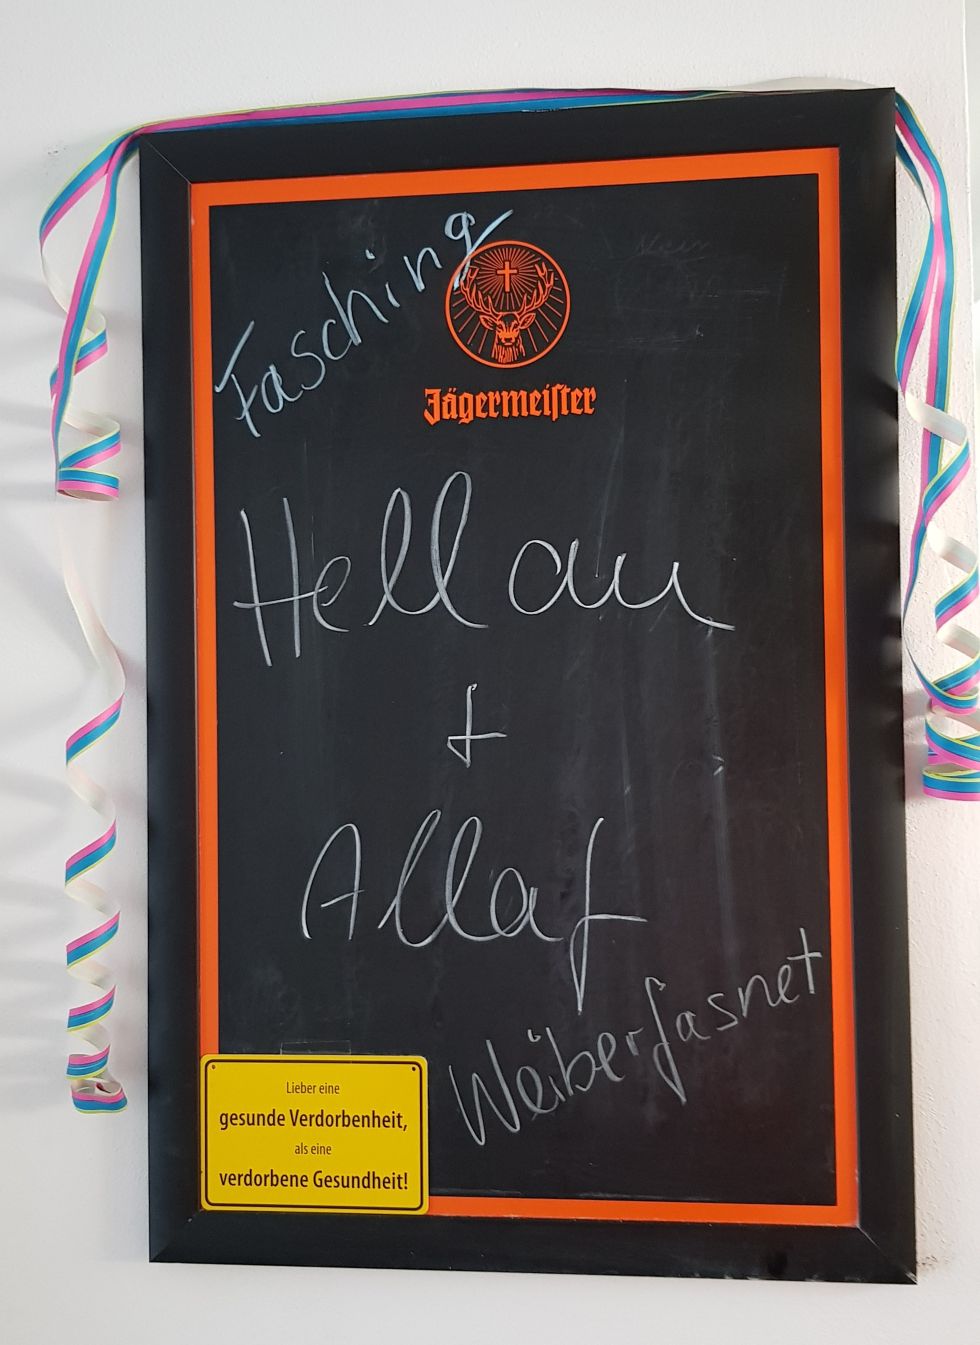 Fasching
Jägermeiſter
Hellau
+
Allaf
Weiberfasnet
Lieber eine
gesunde Verdorbenheit,
als eine
verdorbene Gesundheit!